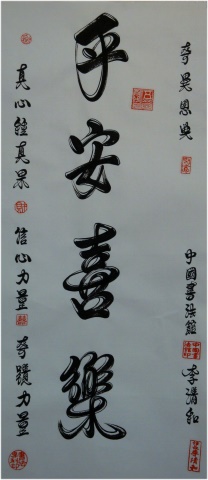 奇異恩典
中國書法館 李清和
平安喜樂
真心 真果 信心力量 奇蹟力量